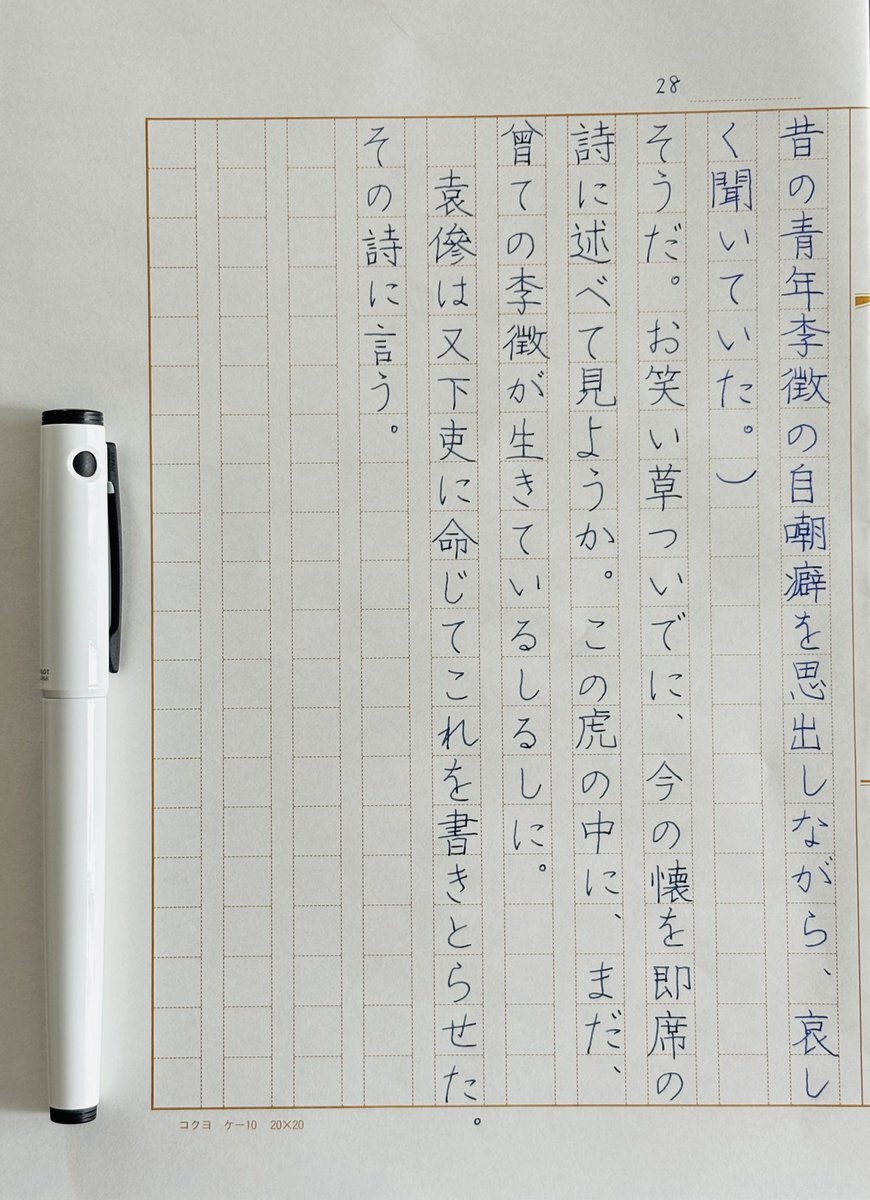 28
昔の青年李徴の自嘲癖を思出しながら、哀し
く聞いていた。)
そうだ。お笑い草ついでに、今の懐を即席の
詩に述べて見ようか。この虎の中に、まだ、
曾ての李徴が生きているしるしに。
袁傪は又下吏に命じてこれを書きとらせた。
その詩に言う。
コクヨ ケー10 20×20